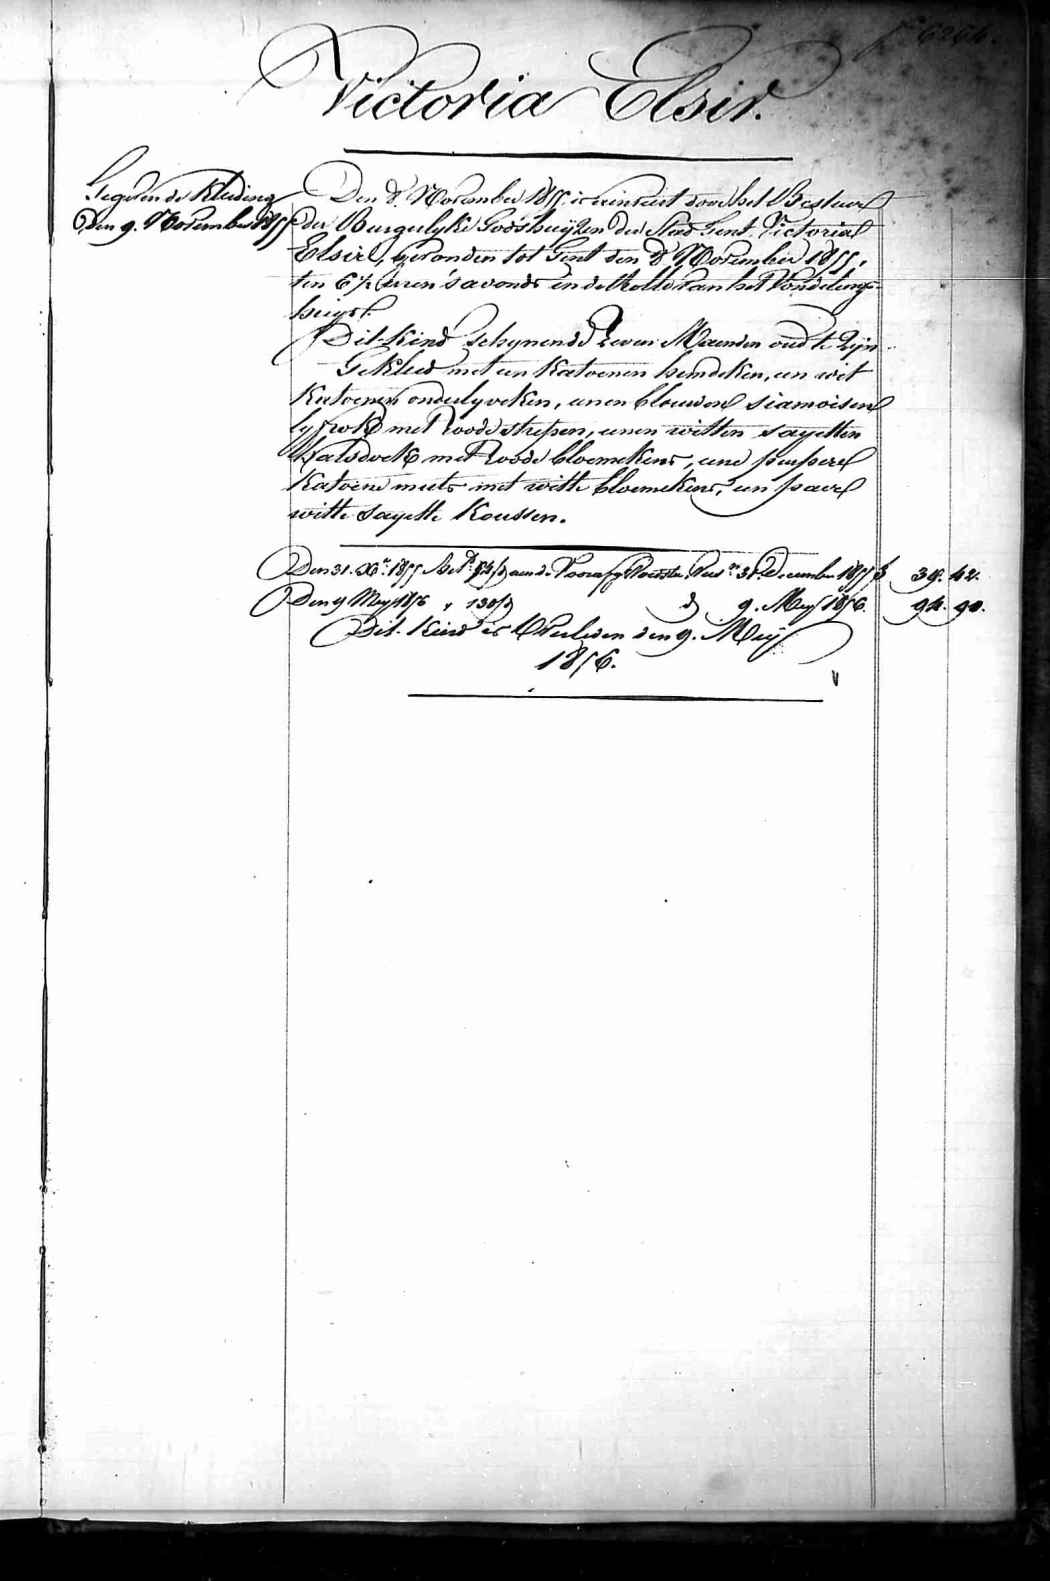 6264.
Victoria Elsir.
Gegeven de Kleeding
Den 9. November 1855
Den 8. November 1855 is door het Bestuur
der Burgerlyke Godshuyzen der Stad Gent, Victoria
Elsir, gevonden tot Gent den 8 November 1855,
ten 6½ uren s'avonds in de Rolle van het Vondelings-
huys.
Dit Kind schynende zeven Maenden oud te zyn
Gekleed met een Katoenen hemdeken, een wit
Katoenen onderlyveken, eenen blauwen siamoisen
lyfrok met roode strepen, eenen witten sayetten
Halsdoek met roode bloemekens, eene purpere
Katoene muts met witte bloemekens, een paer
witte Sayette Koussen.
Den 31. Xr. 1855 Bet. 54 aen de Voorafg 31 December 1855 39. 42.
Den 9 Mey 1856 " 130 d 9. Mey 1856. 94. 90.
Dit Kind is Overleden den 9. Mey
1856.